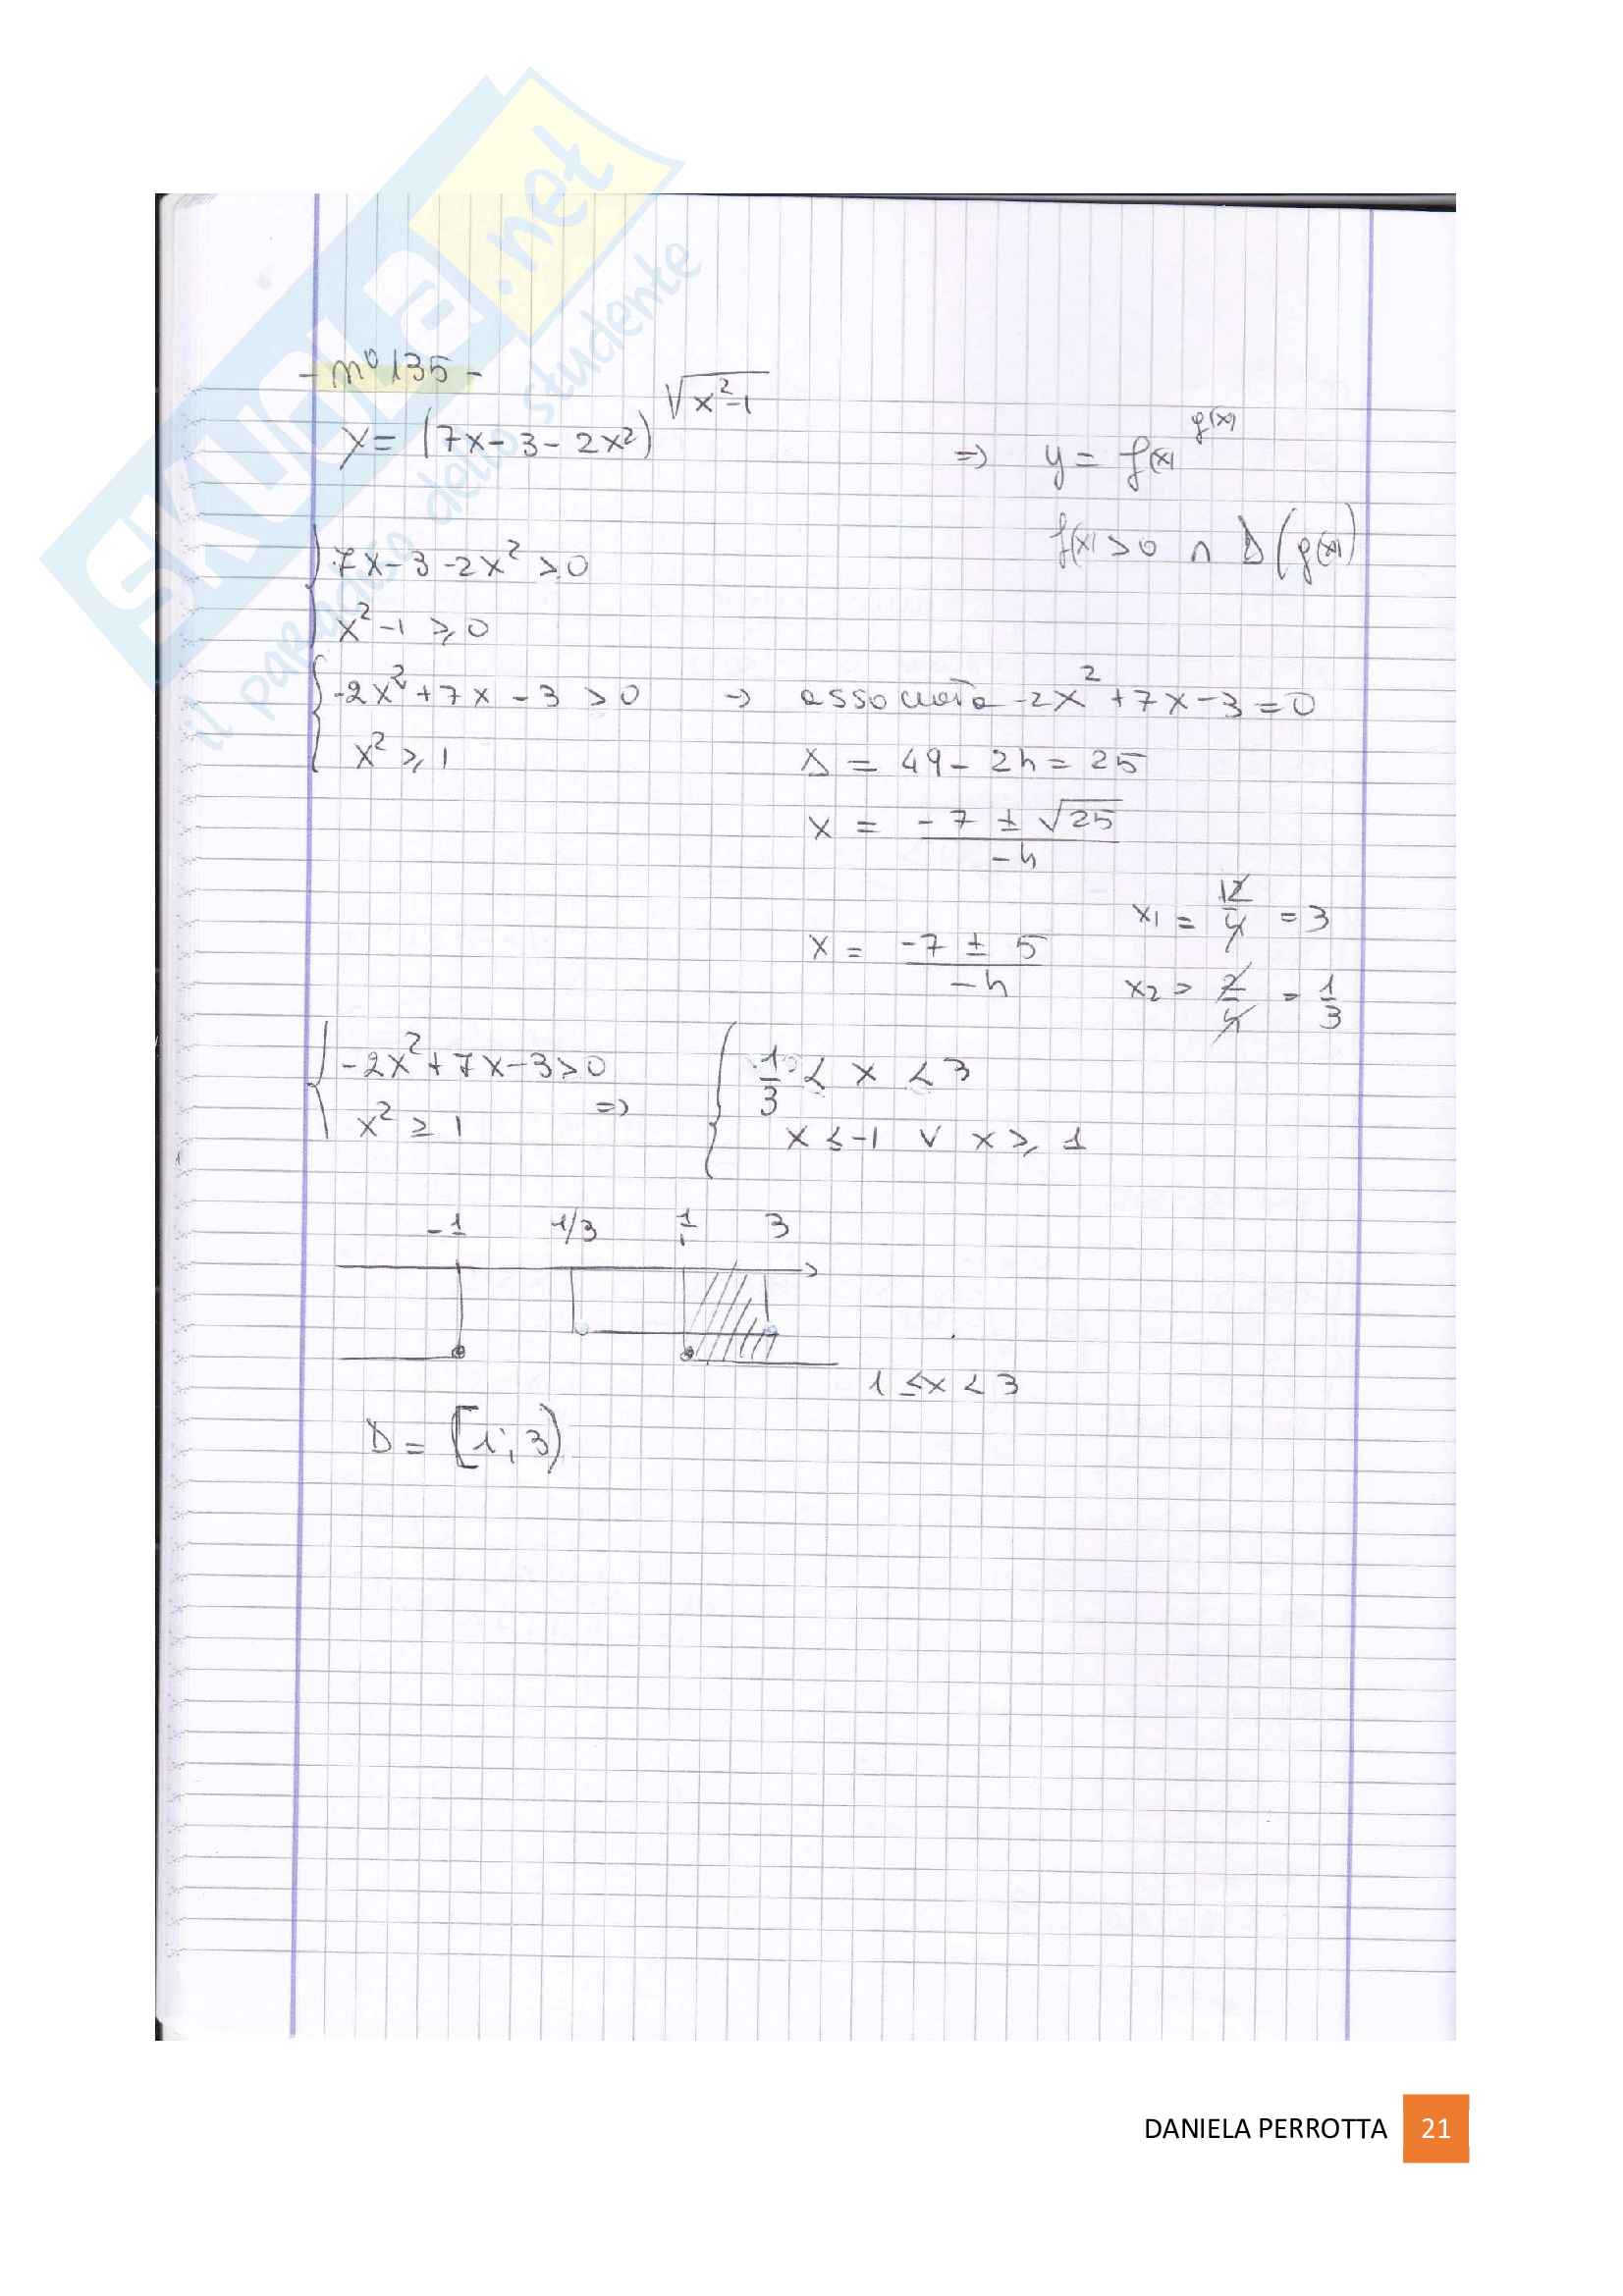 SKUOLa.net
il paradiso dello studente
- n° 135 -
y = (7x - 3 - 2x²)^√(x²-1) ⇒ y = f(x)^g(x)
f(x) > 0 ∩ D(g(x))
{ 7x - 3 - 2x² > 0
x² - 1 ≥ 0
{ -2x² + 7x - 3 > 0 → associata -2x² + 7x - 3 = 0
x² ≥ 1 Δ = 49 - 24 = 25
x = (-7 ± √25)/-4
x = (-7 ± 5)/-4 x1 = 12/4 = 3
x2 = 2/4 = 1/3
{ -2x² + 7x - 3 > 0 ⇒ { 1/3 < x < 3
x² ≥ 1 x ≤ -1 ∨ x ≥ 1
-1 1/3 1 3
1 ≤ x < 3
D = [1; 3)
DANIELA PERROTTA 21